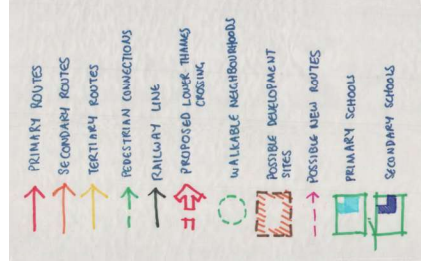 PRIMARY ROUTES
SECONDARY ROUTES
TERTIARY ROUTES
PEDESTRIAN CONNECTIONS
RAILWAY LINE
PROPOSED LOWER THAMES
CROSSING
WALKABLE NEIGHBOURHOODS
POSSIBLE DEVELOPMENT
SITES
POSSIBLE NEW ROUTES
PRIMARY SCHOOLS
SECONDARY SCHOOLS